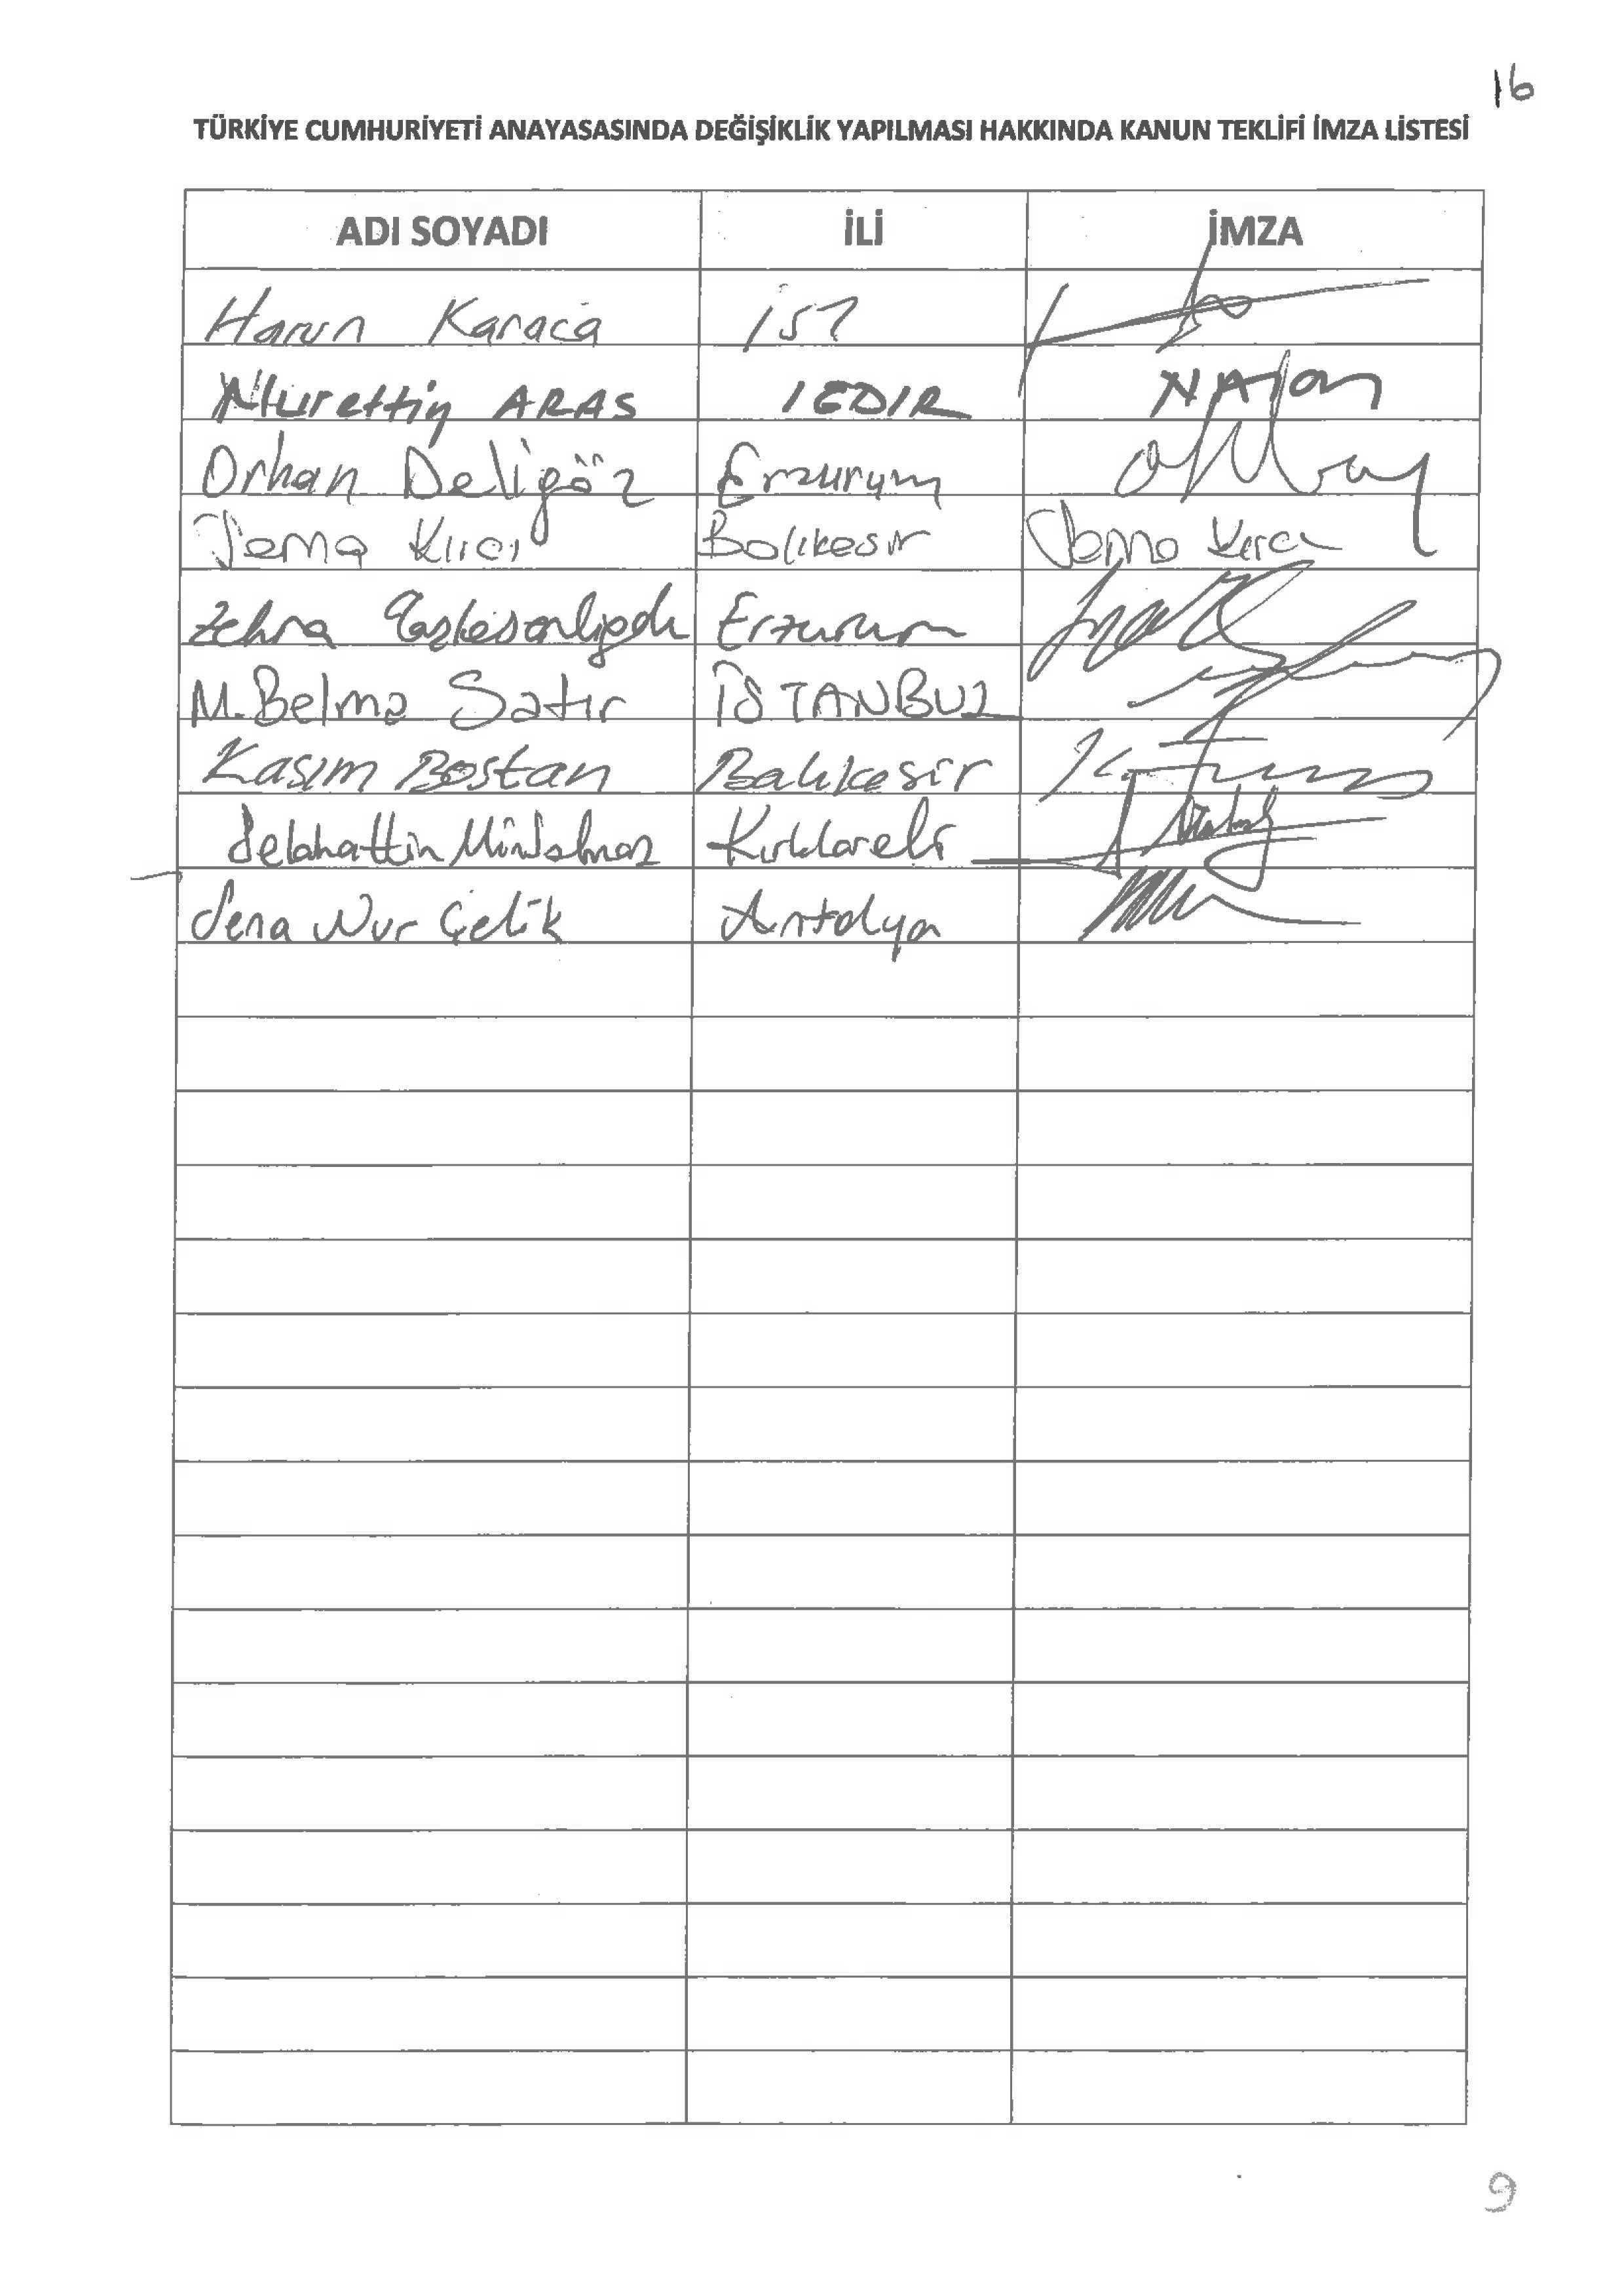 16
TÜRKİYE CUMHURİYETİ ANAYASASINDA DEĞİŞİKLİK YAPILMASI HAKKINDA KANUN TEKLİFİ İMZA LİSTESİ
ADI SOYADI İLİ İMZA
Harun Karaca İST
Nurettin ARAS IĞDIR
Orhan Deligöz Erzurum
Sema Kırcı Balıkesir Sema Kırcı
Zehra Taşkesenlioğlu Erzurum
M. Belma Satır İSTANBUL
Kasım Bostan Balıkesir
Selahattin Minsolmaz Kırklareli
Sena Nur Çelik Antalya
9